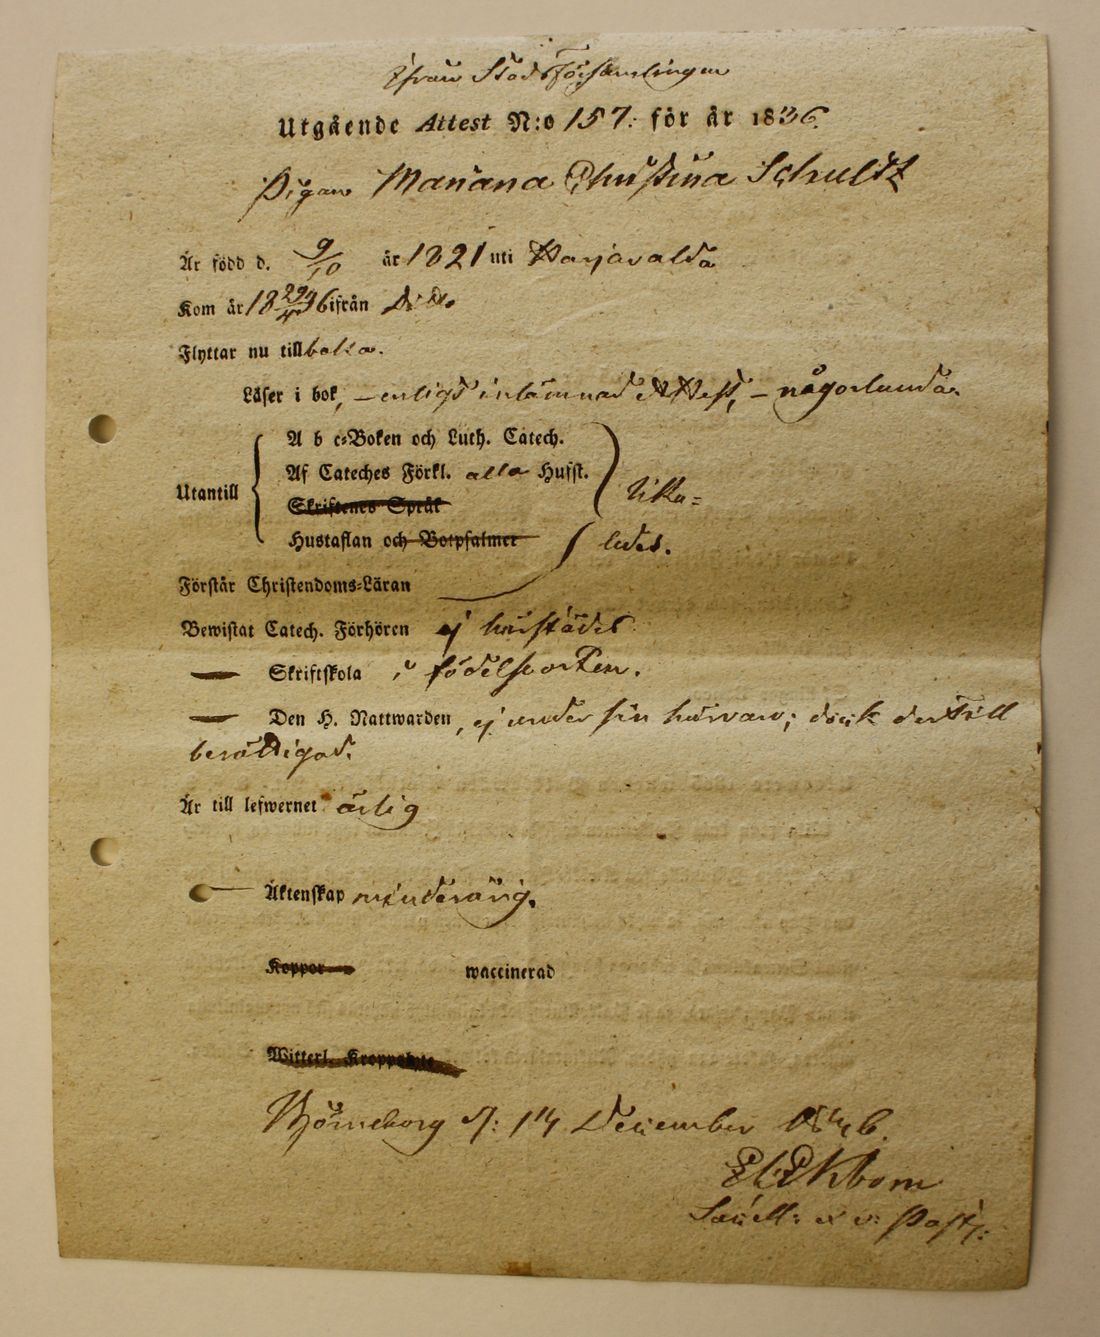 ifrån StadsFörsamlingen
Utgående Attest N:o 157. för år 1836.
Pigan Mariana Christina Schultz
Är född d. 9/10 år 1821 uti Harjavalda
Kom år 18 36 ifrån Dito
Flyttar nu till baka.
Läser i bok, – enligt inlämnad Attest, – någorlunda.
A b c-Boken och Luth. Catech.
Utantill Af Cateches Förkl. alla Husst. lika=
Skriftenes Språk
Hustaflan och Botpsalmer ledes.
Förstår Christendoms-Läran
Bewistat Catech. Förhören ej härstädes
— Skriftskola i födelseorten.
— Den H. Nattwarden, ej under sin härvaro; dock dertill
berättigad.
Är till lefwernet ärlig
— Äktenskap minderårig.
Koppor waccinerad
Witterl. Kroppslyte
Björneborg d: 14 December
Ekbom